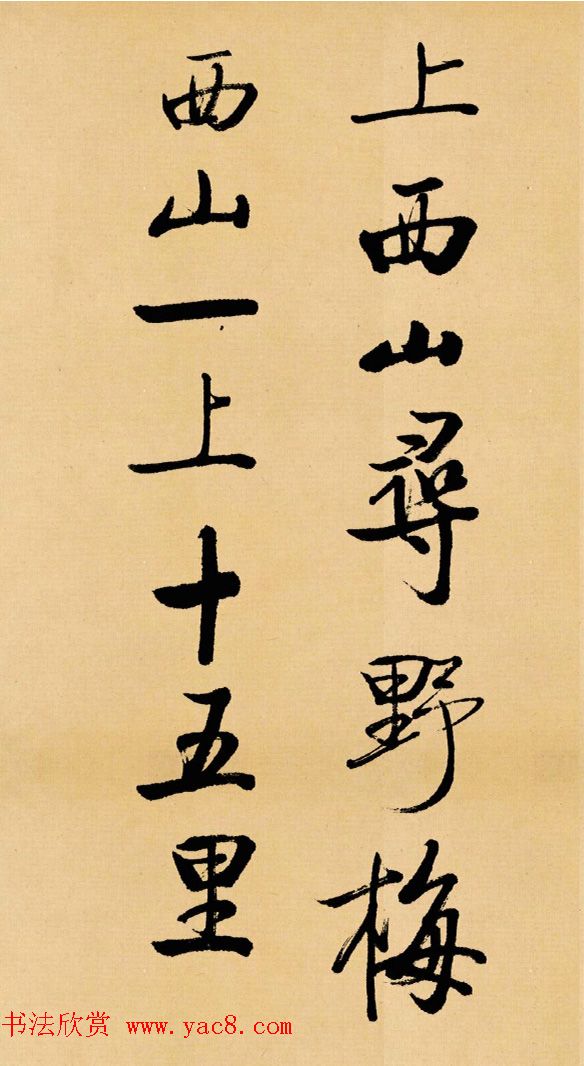 上西山尋野梅
西山一上十五里
书法欣赏 www.yac8.com